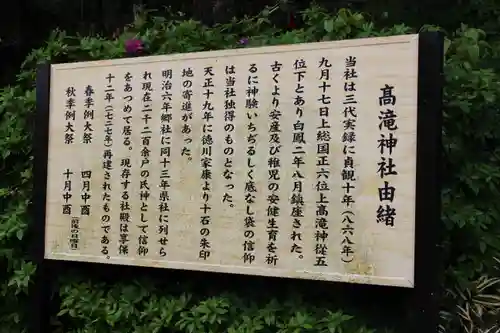 高滝神社由緒
当社は三代実録に貞観十年（八六八年）
九月十七日上総国正六位上高滝神従五
位下とあり白鳳二年八月鎮座された。
古くより安産及び稚児の安健生育を祈
るに神験いちぢるしく底なし袋の信仰
は当社独得のものとなった。
天正十九年に徳川家康より十石の朱印
地の寄進があった。
明治六年郷社に同十三年県社に列せら
れ現在二千二百余戸の氏神として信仰
をあつめて居る。現存する社殿は享保
十二年（七二七年）再建されたものである。
春季例大祭　四月中酉
秋季例大祭　十月中酉（前後の日曜日）